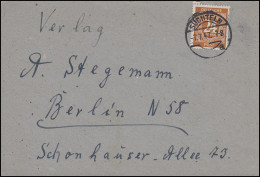 Verlag
A. Stegemann
Berlin N 58
Schönhauser-Allee 73.